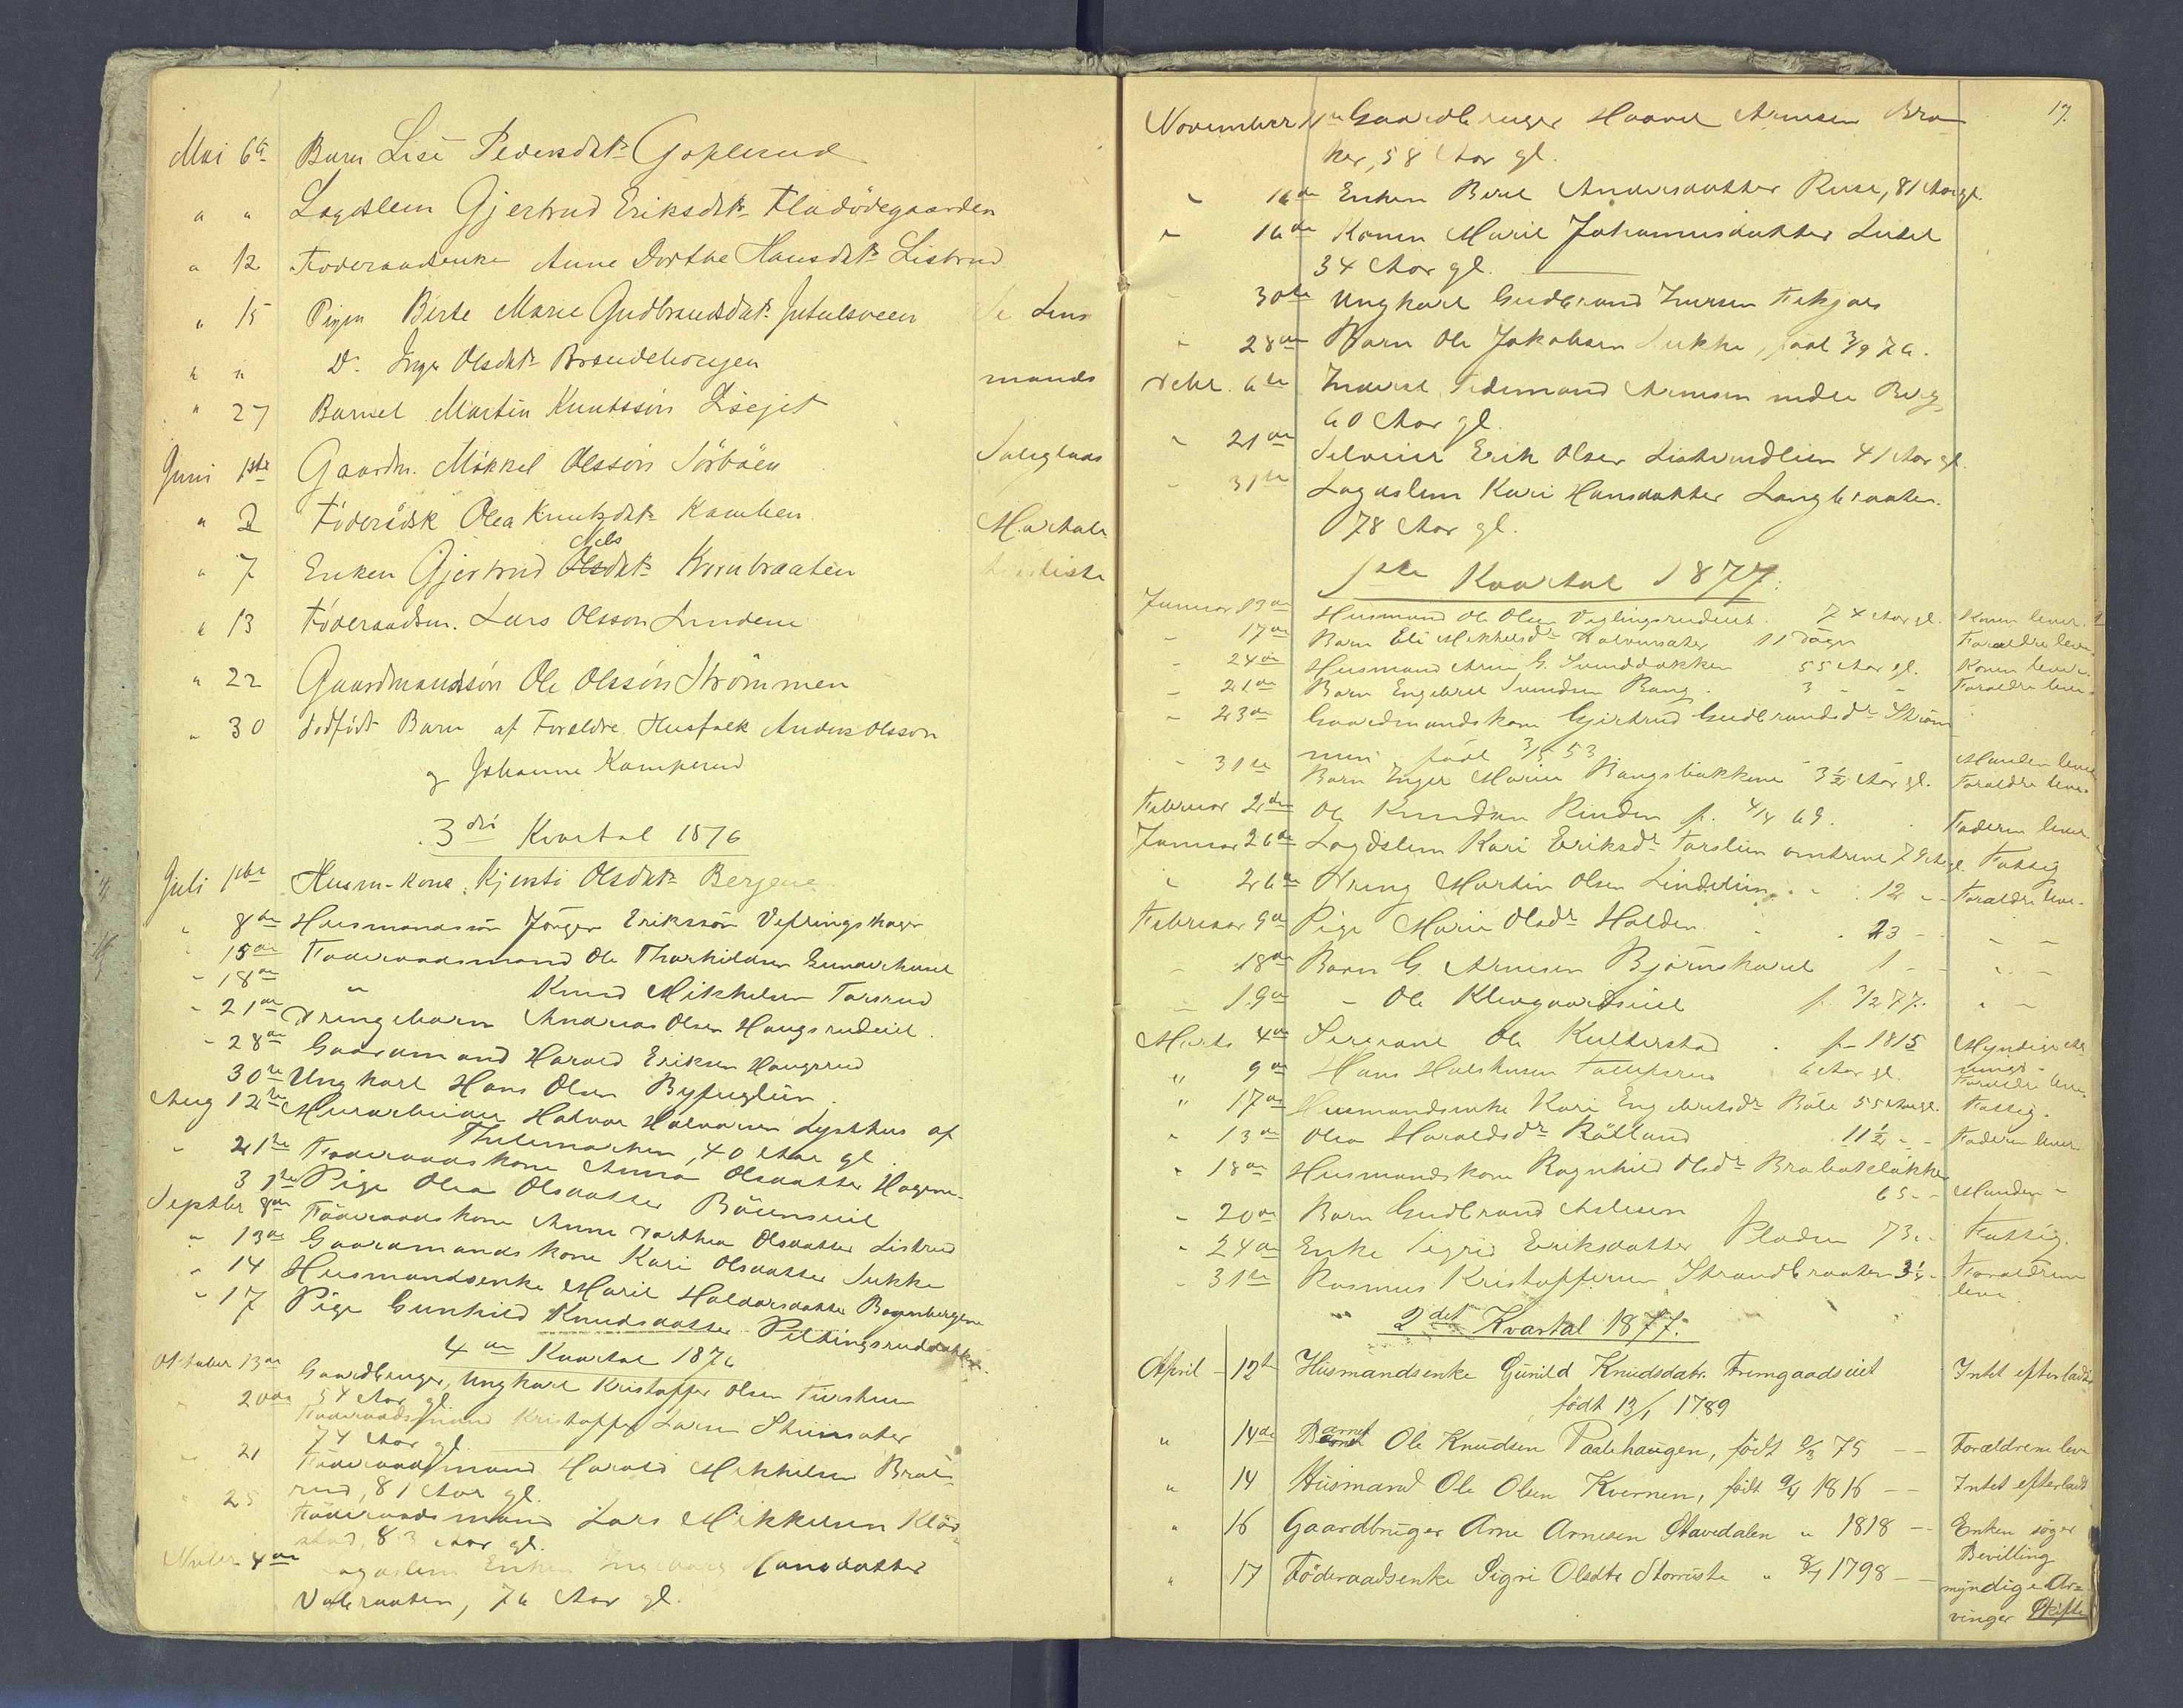 Mai 6te Barn Lise Pedersdtr Goplerud
" " Lægdslem Gjertrud Eriksdtr Fladödegaarden
" 12 Föderaadsenke Anne Dorthe Hansdtr Listrud
" 15 Pigen Berte Marie Gudbrandsdatr Jutulsveen Se Lens
" " Do. Inger Olsdtr Brændehougen mands
" 27 Barnet Martin Knutssön Lisejet
Juni 1ste Gaardm. Mikkel Olssön Sörböen
" 2 Föderådsk Olea Knutsdtr Kamben
" 7 Enken Gjertrud Nils Olsdtr Kornbraaten
" 13 Föderaadsm. Lars Olsson Lundene
" 22 Gaardmandssön Ole Olssön Strömmen
" 30 dödfödt Barn af Forældre Husfolk Anders Olsson
og Johanne Kamperud
3die Kvartal 1876
Juli 1ste Husm-kone Kjersti Olsdtr Bergene
" 8de Husmandssön Jörgen Erikssön Veflingshagen
" 15de Föderaadsmand Ole Thorkildsen Gunderhuset
" 18de " Knud Mikkelsen Torsrud
" 21de Drengebarn Andreas Olsen Haugsrudeiet.
" 28de Gaardmand Harald Eriksen Haugsrud
30te Ungkarl Hans Olsen Byfuglien.
Aug 12te Murarbeider Halvor Halvorsen Lysthus af
Thelemarken, 40 Aar gl.
" 21te Föderaadskone Anna Olsdatter Hagene
31te Pige Olea Olsdatter Böenseiet
Septbr 8de Föderaadskone Anne Dorthea Olsdatter Listrud
" 13de Gaardmandskone Kari Olsdatter Sukke
" 14 Husmandsenke Marit Haldorsdatter Bagenbergene
" 17 Pige Gunhild Knudsdatter Piltingsruddokken
4de Kvartal 1876
Oktober 13de Gaardbruger, Ungkarl Kristoffer Olsen
54 Aar gl.
" 20de Föderaadsmand Kristoffer Larsen
74 Aar gl.
" 21 Föderaadsmand Harald Mikkelsen Bratterud,
81 Aar gl.
" 25 Föderaadsmand Lars Mikkelsen Klöv
stad, 83 Aar gl.
4de Lægdslem Enke Ingeborg Hansdatter
76 Aar gl.
17.
November Gaardbruger Haavel Arnesen Bra
ker, 58 Aar gl.
" 16de Enken Berit Andersdatter Ruse, 81 Aar gl.
" 16de Konen Marit Johannesdatter Lusel
34 Aar gl.
30te Ungkarl Gudbrand Iversen Fekjær
" 28de Barn Ole Jakobsen Sukke, födt 3/9 76.
Debr. 6te Inderst Tidemand Arnesen nedre Berg,
60 Aar gl.
" 21de Selveier Erik Olsen Listrudlien 41 Aar gl.
" 31te Lægdslem Kari Hansdatter Langbraaten.
78 Aar gl.
1ste Kvartal 1877.
Januar 13de Husmand Ole Olsen Veflingsrudeiet. 74 Aar gl. Konen lever.
" 17de Barn Eli Mikkelsdr Halvorsæter 11 dage Forældre leve.
" 24de Husmand Arne G. Svenddokken 55 Aar gl. Konen lever.
" 21de Barn Engebret Svendsen Bang. 3 " " Forældre leve.
" 23de Gaardmandskone Gjertrud Gudbrandsdr Ström
men födt 3/5 53 Manden lever
" 31te Barn Inger Marie Bangsbakkene 3½ Aar gl. Forældre leve.
Februar 2den Ole Knudsen Rinden f. 4/4 69. Faderen lever.
Januar 26de Lægdslem Kari Eriksdr Torslien omtrent 79 Aar gl. Fattig
" 26de Dreng Martin Olsen Lindelien. " 12 " " Forældre leve.
Februar 9de Pige Marie Olsdr Holden 23 " " "
" 18de Barn G. Arnesen Björnskaret 1 " " "
" 19de " Ole Klevgaardseiet f. 3/2 77. " "
Marts 4de Sersjant Ole Kulterstad f. 1815 Myndige Ar
vinge
" 9de Hans Halsteinsen Tollefsrud 6 Aar gl. Forældre leve
" 17de Husmandsenke Kari Engebretsdr Böle 55 Aar gl. Fattig.
" 13de Olea Haraldsdr Rötland 11½ " " Faderen lever
" 18de Husmandskone Ragnhild Olsdr Brobotslökken
65 " " Manden "
" 20de Barn Gudbrand Aslesen
" 24de Enke Sigrid Eriksdatter Pladsen 73 " " Fattig.
" 31te Rasmus Kristoffersen Strandbraaten 3½ " Forældrene
leve
2det Kvartal 1877.
April 12te Husmandsenke Gunild Knudsdatr. Fremgaadseiet Intet efterladt
födt 13/1 1789
" 14de Barnet Ole Knudsen Paalehaugen, födt 9/3 75 — Forældrene leve
" 14 Husmand Ole Olsen Kvernen, födt 9/4 1816 — Intet efterladt
" 16 Gaardbruger Arne Arnesen Stavedalen " 1818 — Enken söger
Bevilling
" 17 Föderaadsenke Sigri Olsdtr Storruste " 8/7 1798 — myndige Ar=
vinger Skifte